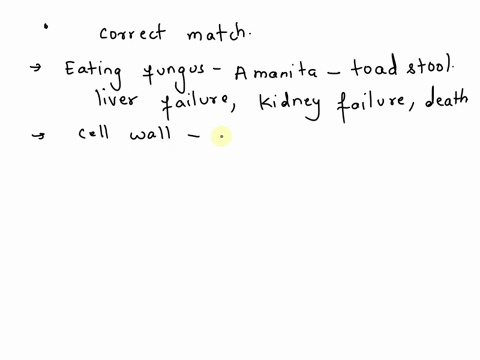 • correct match.
→ Eating fungus - Amanita - toad stool.
liver failure, kidney failure, death
→ cell wall -